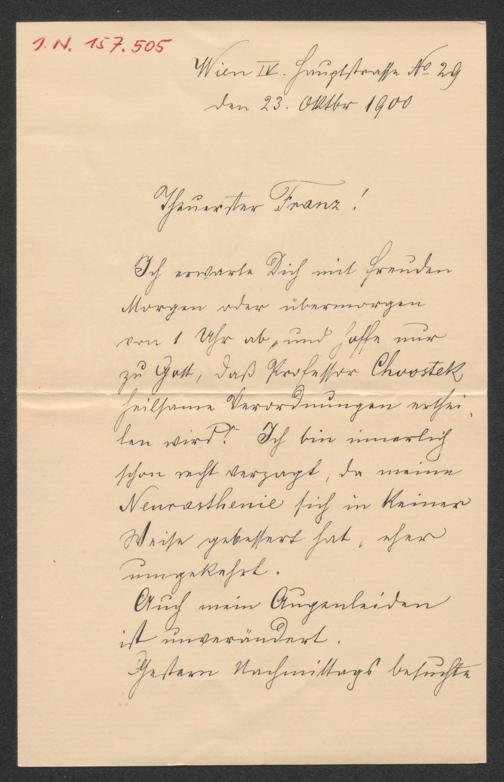 J. N. 157.505
Wien IV. Hauptstrasse No 29
den 23. Oktbr 1900
Theuerster Franz!
Ich erwarte Dich mit Freuden
Morgen oder übermorgen
von 1 Uhr ab, und hoffe nur
zu Gott, daß Professor Chvostek
heilsame Verordnungen erthei-
len wird! Ich bin innerlich
schon recht verzagt, da meine
Neurasthenie sich in keiner
Weise gebessert hat, eher
umgekehrt.
Auch mein Augenleiden
ist unverändert.
Gestern Nachmittags besuchte